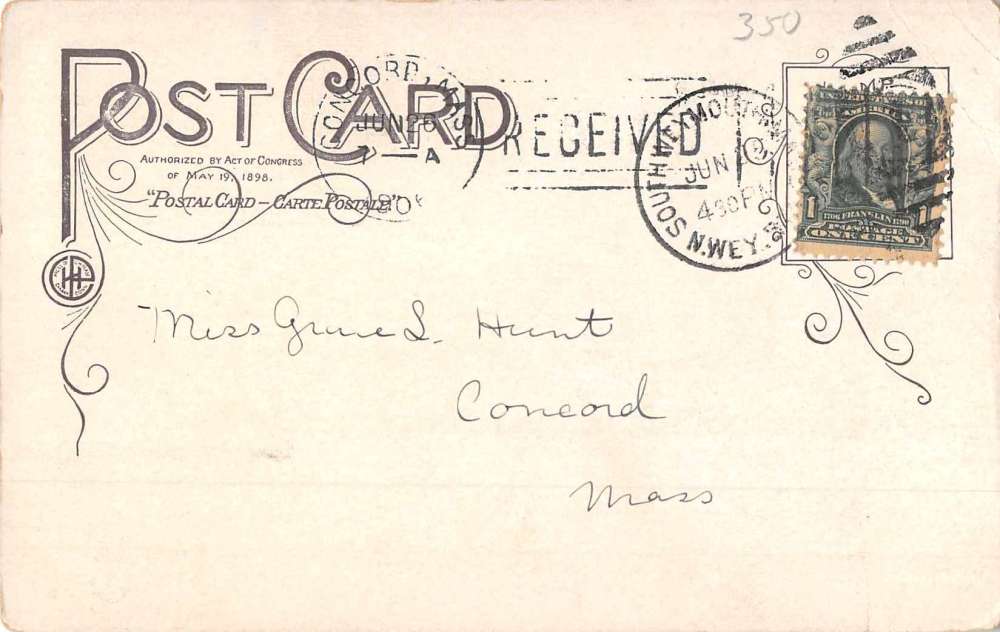 350
POST CARD
AUTHORIZED BY ACT OF CONGRESS
OF MAY 19, 1898.
"POSTAL CARD – CARTE POSTALE"
CONCORD, MASS.
JUN 26
A
RECEIVED
SOUTH WEYMOUTH
JUN
430 PM
N.WEY.
1706 FRANKLIN 1790
1 POSTAGE 1
ONE CENT
Miss L. Hunt
Concord
Mass